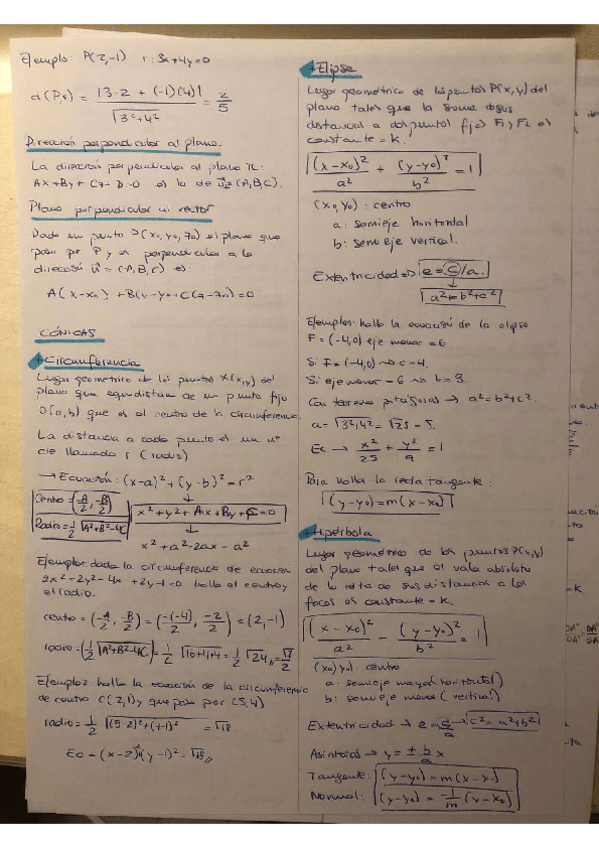 Ejemplo: P(2,-1) r: 3x+4y=0
d(P,r) = |3·2 + (-1)(4)| / √3²+4² = 2/5
Dirección perpendicular al plano.
La dirección perpendicular al plano π:
Ax+By+Cz+D=0 es la de u⃗=(A,B,C).
Plano perpendicular un vector
Dado un punto P(x₀,y₀,z₀) el plano que
pasa por P y es perpendicular a la
dirección u⃗=(A,B,C) es
A(x-x₀)+B(y-y₀)+C(z-z₀)=0
CÓNICAS
Circunferencia
Lugar geométrico de los puntos X(x,y) del
plano que equidistan de un punto fijo
O(a,b) que es el centro de la circunferencia.
La distancia a cada punto es un nº
cte llamado r (radio)
→ Ecuación: (x-a)²+(y-b)²=r²
Centro=(-A/2, -B/2)
Radio=1/2 √A²+B²-4C
x²+y²+Ax+By+C=0
x²+a²-2ax-a²
Ejemplo: dada la circunferencia de ecuación
2x²-2y²-4x+2y-1=0 halla el centro y
el radio.
centro=(-A/2, -B/2)=(-(-4)/2, -2/2)=(2,-1)
radio=(1/2 √A²+B²-4C)=1/2 √16+4+4=1/2 √24
Ejemplo 2 halla la ecuación de la circunferencia
de centro C(2,1) y que pasa por (5,4)
radio=1/2 √(5-2)²+(4-1)² =√18.
Ec=(x-2)²+(y-1)²=√18
Elipse
Lugar geométrico de los puntos P(x,y) del
plano tales que la suma de sus
distancias a dos puntos fijos F1 y F2 es
constante = k.
(x-x₀)²/a² + (y-y₀)²/b² = 1
(x₀,y₀): centro
a: semieje horizontal
b: semieje vertical.
Exentricidad ⇒ e=c/a.
a²=b²+c²
Ejemplos: halla la ecuación de la elipse
F=(-4,0) eje menor=6
Si F=(-4,0) → c=4.
Si eje menor=6 → b=3.
Con teorema pitágoras → a²=b²+c².
a=√3²+4²=√25=5.
Ec → x²/25 + y²/9 = 1
Para halla la recta tangente:
(y-y₀)=m(x-x₀)
Hipérbola
Lugar geométrico de los puntos P(x,y)
del plano tales que el valor absoluto
de la resta de sus distancias a los
focos es constante = k.
(x-x₀)²/a² - (y-y₀)²/b² = 1
(x₀,y₀): centro
a: semieje mayor (horizontal)
b: semieje menor (vertical)
Exentricidad → e=c/a → c²=a²+b²
Asíntotas → y=± b/a x
Tangente: (y-y₀)=m(x-x₀)
Normal: (y-y₀)=-1/m (x-x₀)